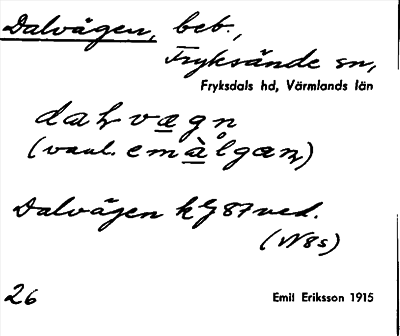 Dalvägen, beb.,
Fryksände sn,
Fryksdals hd, Värmlands län
dalvægn
(vanl. emålgan)
Dalvägen kg 87 ved.
(N8s)
26
Emil Eriksson 1915